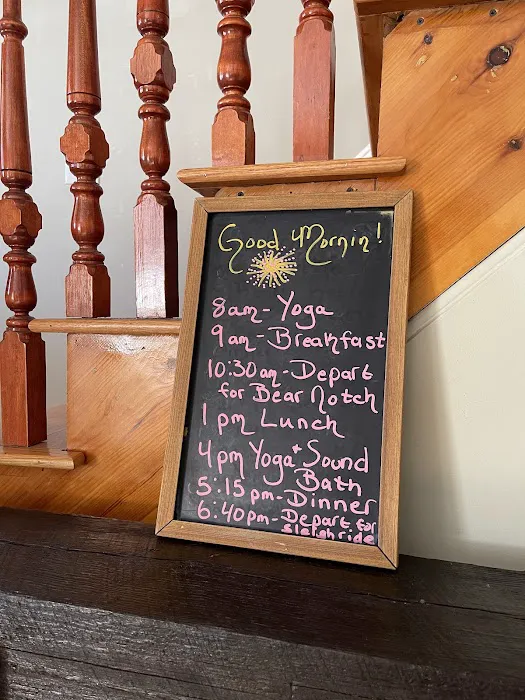 Good Mornin!
8am - Yoga
9am - Breakfast
10:30am - Depart
for Bear Notch
1pm Lunch
4pm Yoga + Sound
Bath
5:15pm - Dinner
6:40pm - Depart for
sleighride